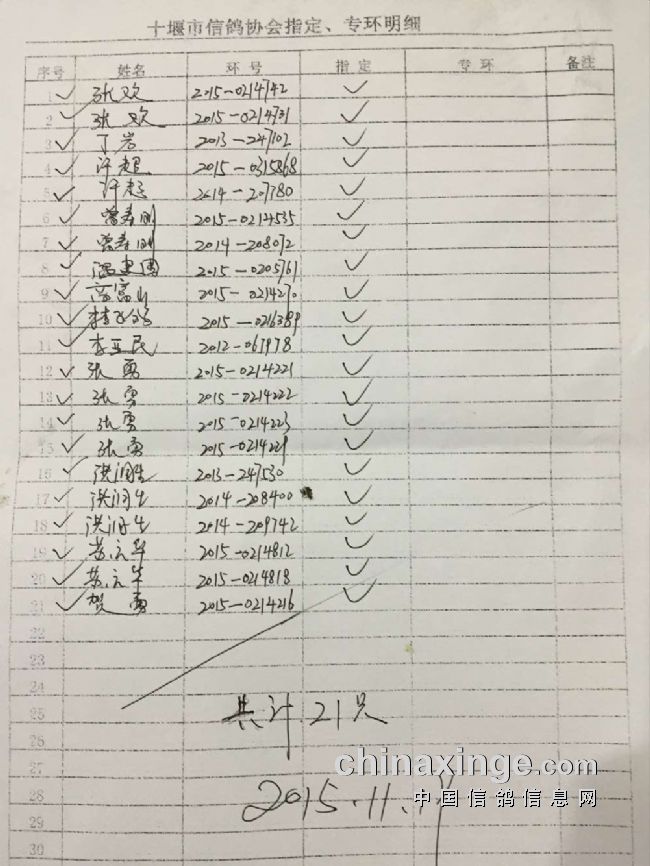 十堰市信鸽协会指定、专环明细
序号 姓名 环号 指定 专环 备注
1 ✓ 张欢 2015-0214742 ✓
2 ✓ 张欢 2015-0214731 ✓
3 ✓ 丁岩 2013-247102 ✓
4 ✓ 许超 2015-0315868 ✓
5 ✓ 许超 2014-207780 ✓
6 ✓ 2015-0214535 ✓
7 ✓ 2014-208072 ✓
8 ✓ 温建国 2015-0205761 ✓
9 ✓ 高富山 2015-0214270 ✓
10 ✓ 2015-0216389 ✓
11 ✓ 李亚民 2012-067978 ✓
12 ✓ 张勇 2015-0214221 ✓
13 ✓ 张勇 2015-0214222 ✓
14 ✓ 张勇 2015-0214223 ✓
15 ✓ 张勇 2015-0214229 ✓
16 ✓ 洪润生 2013-247530 ✓
17 ✓ 洪润生 2014-208400 ✓
18 ✓ 洪润生 2014-209742 ✓
19 ✓ 2015-0214812 ✓
20 ✓ 2015-0214818 ✓
21 ✓ 贺勇 2015-0214216 ✓
22
23
24
25 共计21只
26
27
chinaxinge.com
28 2015.11.
中国信鸽信息网
29
30